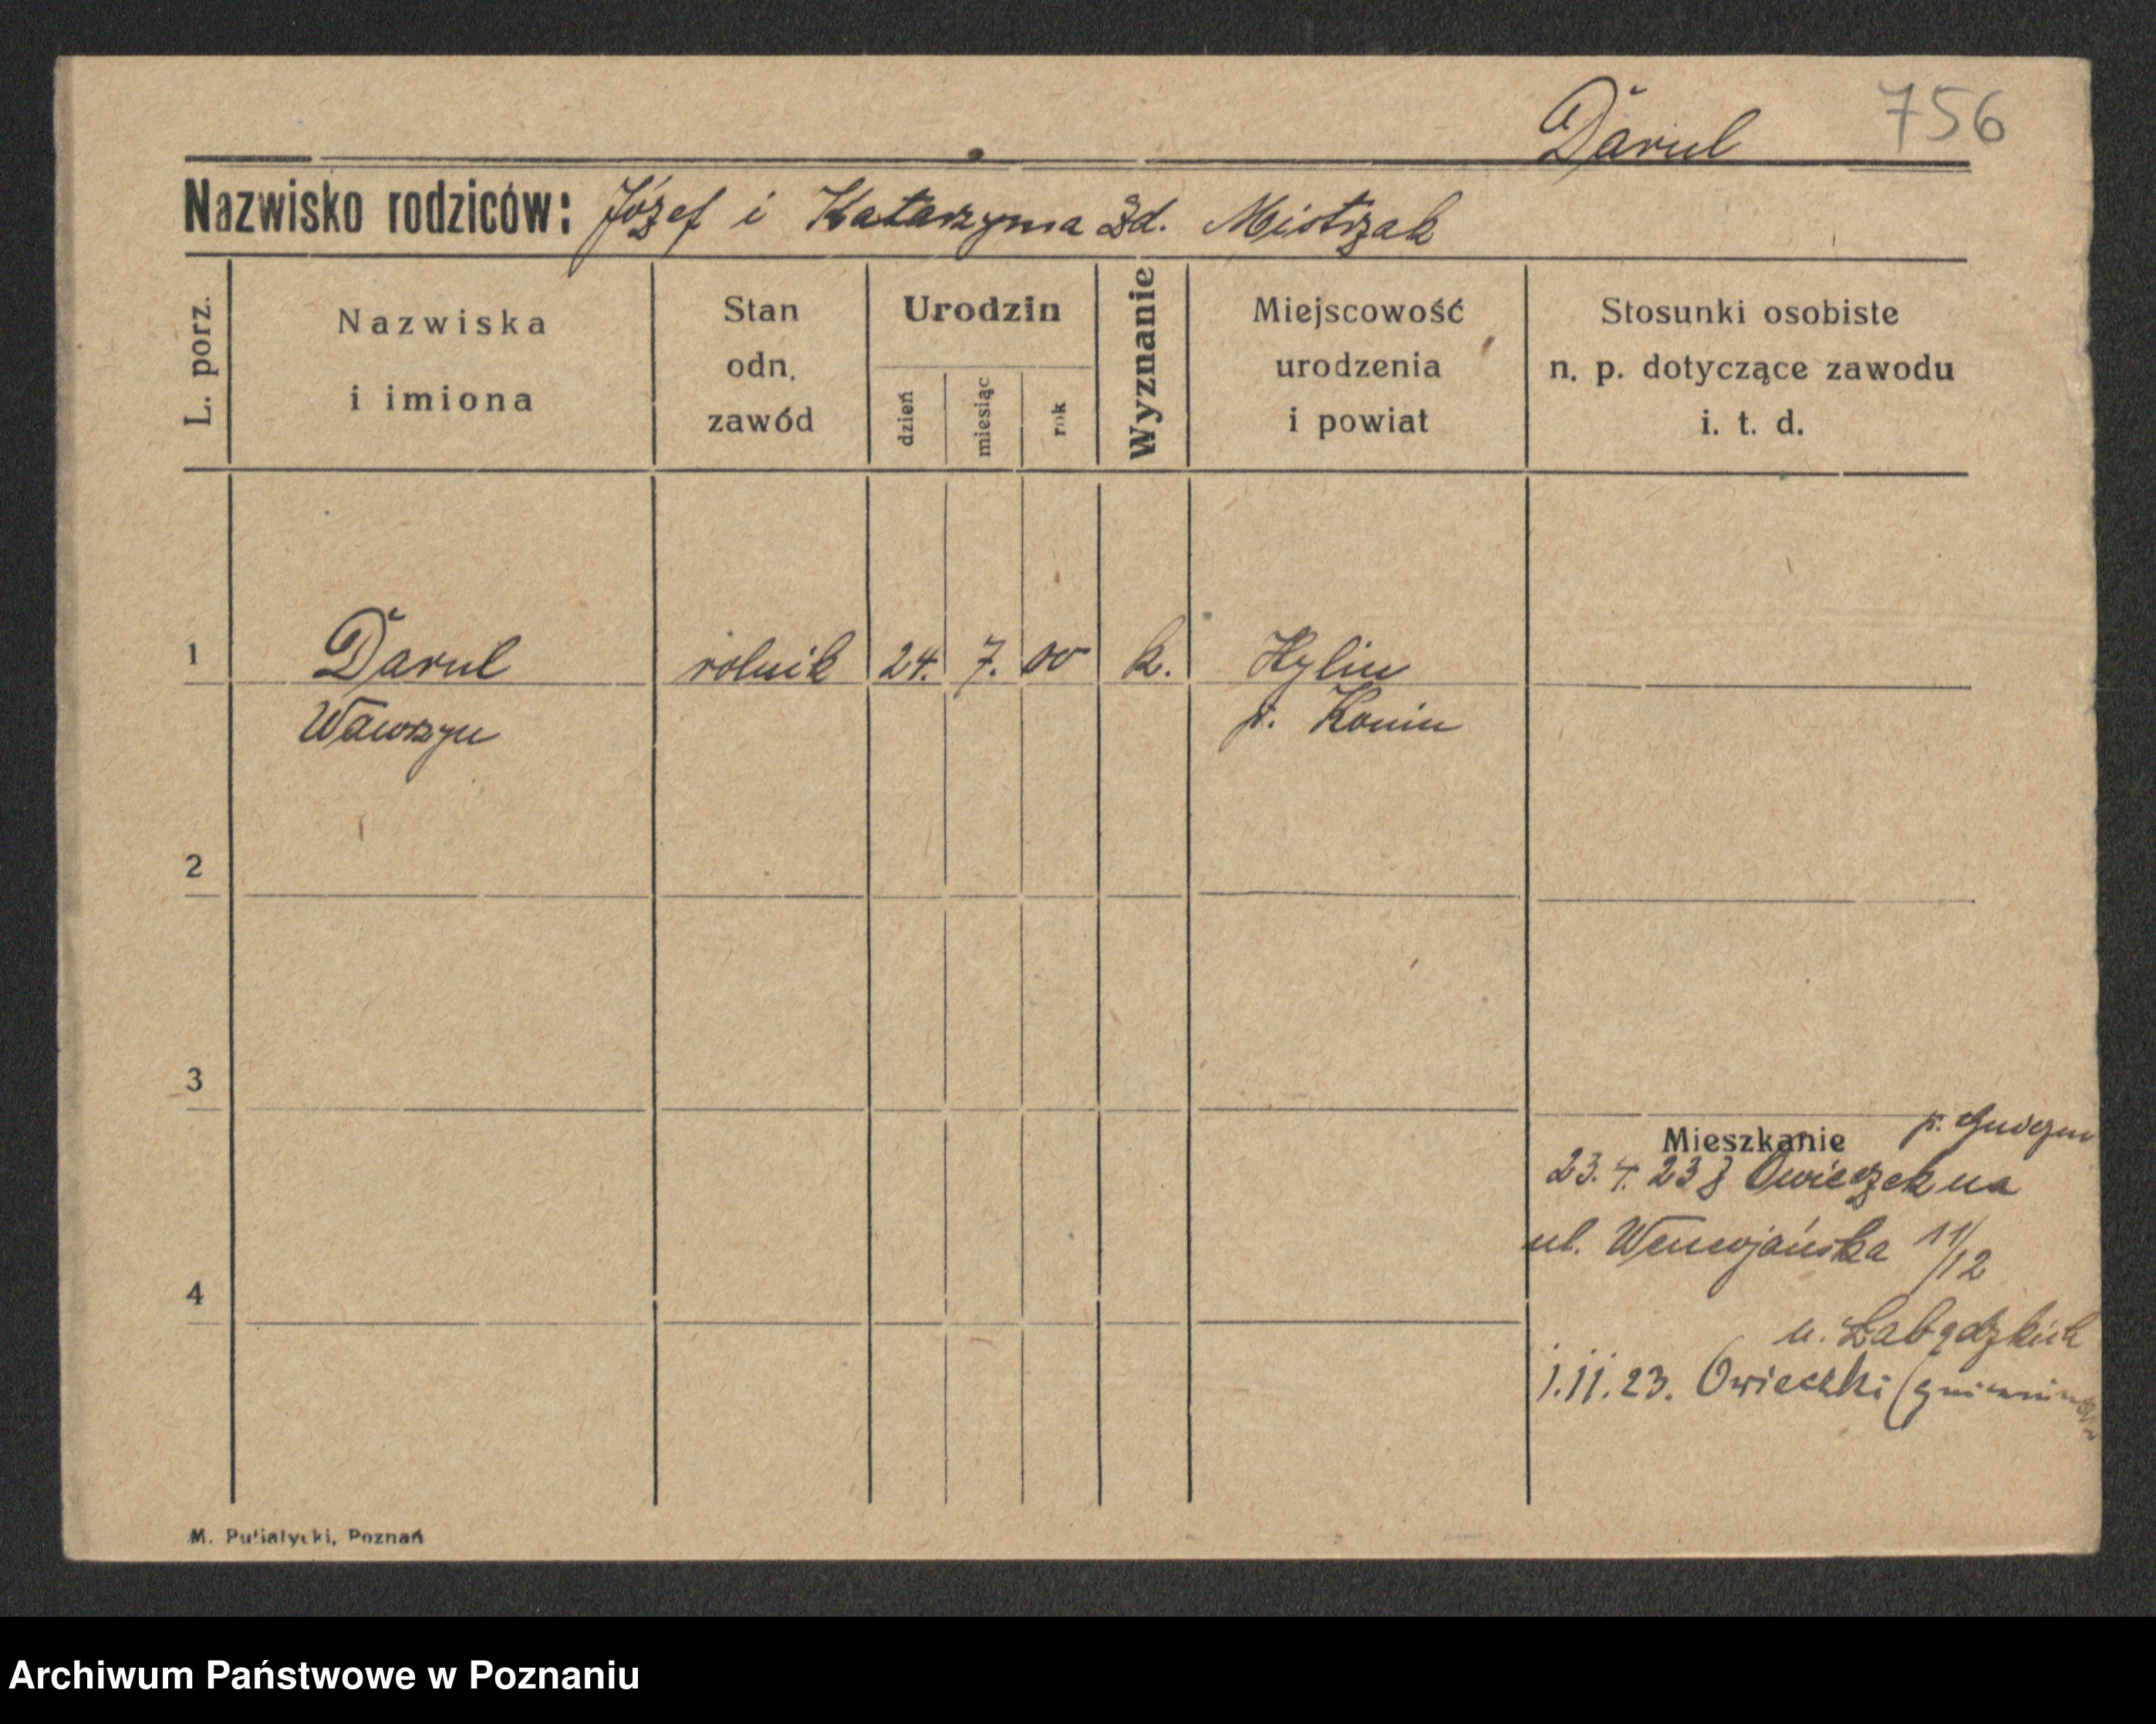 Darul 756
Nazwisko rodziców: Józef i Katarzyna zd. Mistrzak
L. porz.
Nazwiska
i imiona
Stan
odn.
zawód
Urodzin
dzień
miesiąc
rok
Wyznanie
Miejscowość
urodzenia
i powiat
Stosunki osobiste
n. p. dotyczące zawodu
i. t. d.
1 Darul rolnik 24. 7. 00 k.
Wawrzyn p. Konin
2
3
p. Gniezno
Mieszkanie
23. 4. 23 z Owieczek na
ul. 11/12
u.
4
1.11.23. Owieczki
M. Putiatycki, Poznań
Archiwum Państwowe w Poznaniu